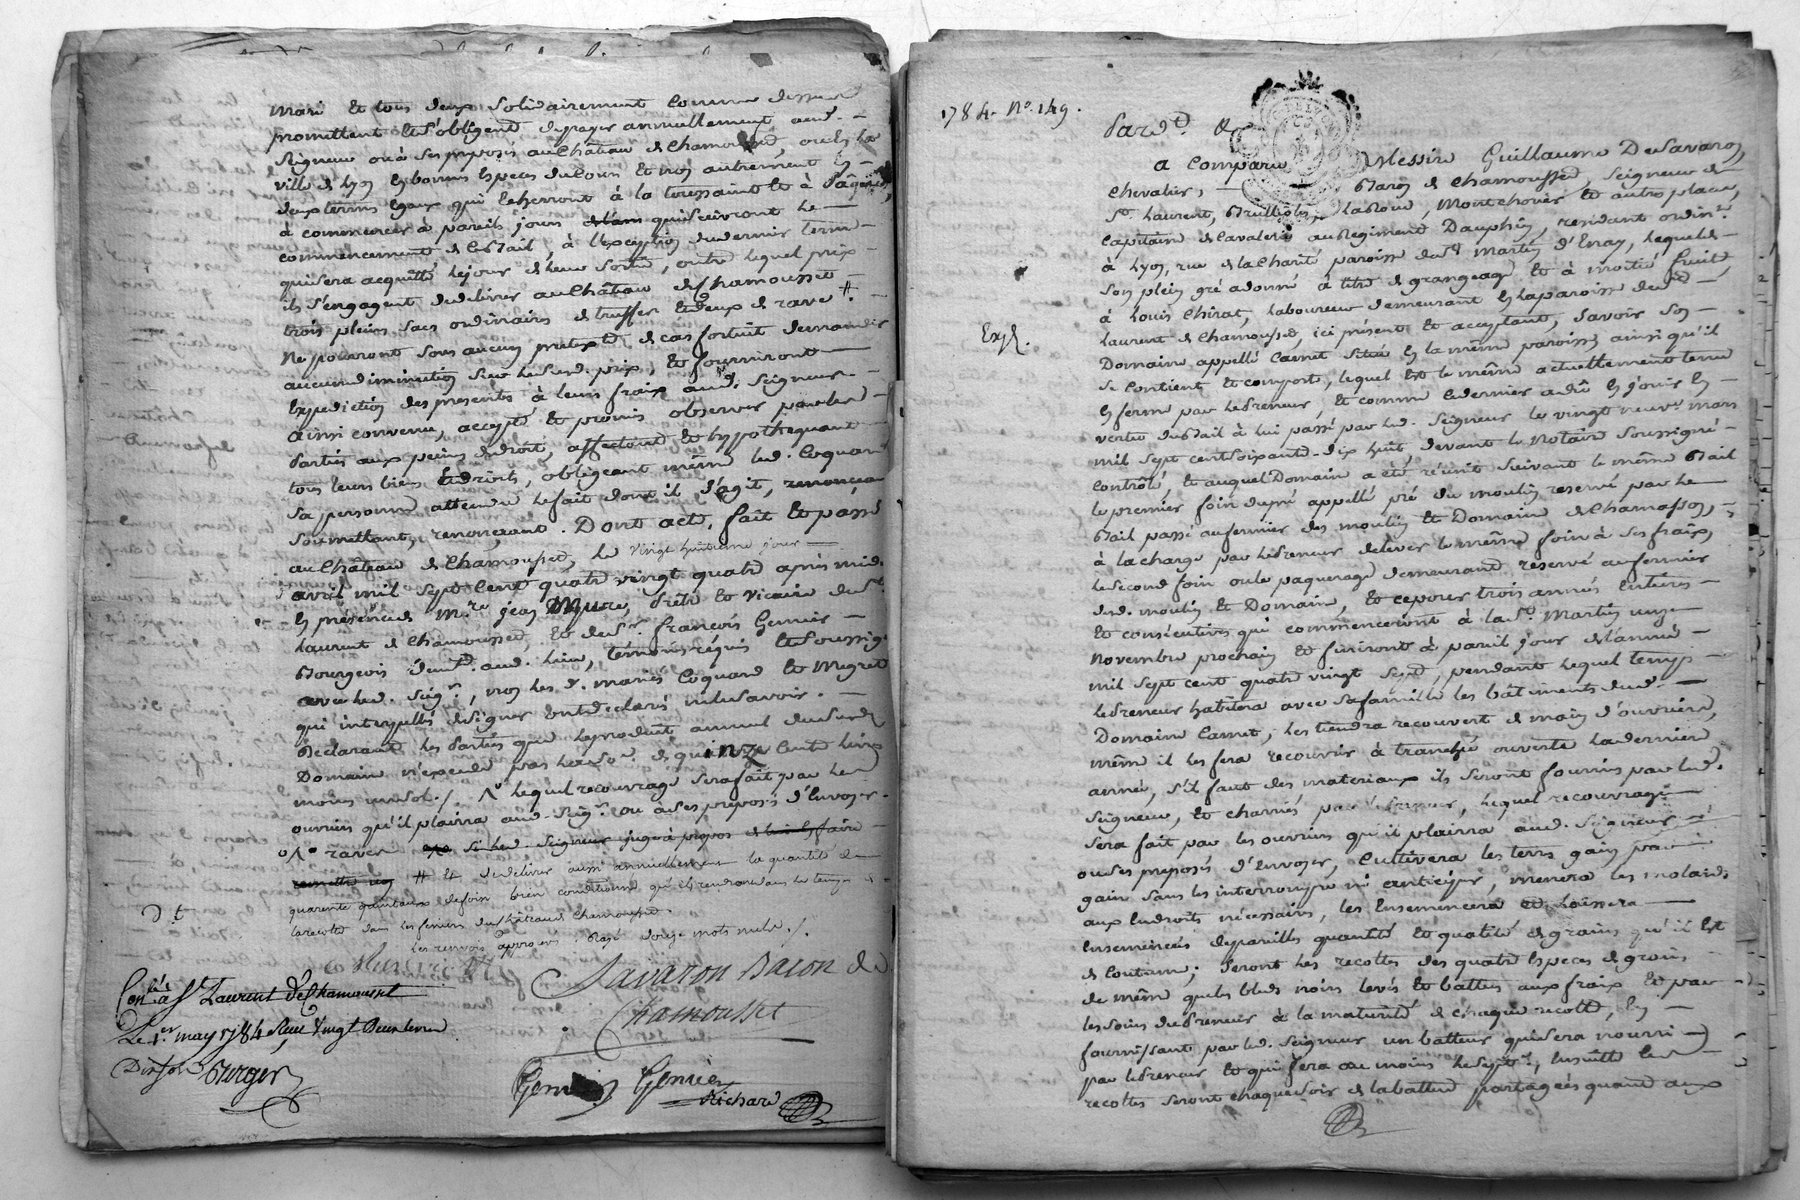 mari et tous deux solidairement comme dessus
promettent et s'obligent de payer annuellement aud. -
seigneur ou à ses préposés au Château de Chamousset, ou en la
ville de Lyon en bonnes espèces du cours et non autrement en -
deux termes égaux qui écherront à la toussaint et à Pâques,
à commencer à pareils jours qui suivront le -
commencement de ce Bail, à l'exception du dernier terme -
qui sera acquitté le jour de leur sortie, outre lequel prix -
ils s'engagent de délivrer au Château de Chamousset -
trois pleins sacs ordinaires de truffes et deux de raves #. -
Ne pourront sous aucun prétexte de cas fortuit demander
aucune diminution sur le susd. prix, et fourniront -
Expédition des présentes à leurs frais aud. seigneur. -
ainsi convenu, accepté et promis observer par les -
Parties aux peines de droit, affectant et hypothequant -
tous leurs biens et droits, obligeant même led. Coquard
sa personne attendu le fait dont il s'agit, renonçant
soumettant, renonçant. Dont acte, fait et passé
au Château de Chamousset, le vingt huitieme jour -
avril mil sept cent quatre vingt quatre après midi
En présence de Mre jean Mure, Prêtre et Vicaire de St
Laurent de Chamousset, et de Sr. françois Genier -
Bourgeois demt. aud. lieu, témoins réquis et soussignés
avec led. seigr., non les d. mariés Coquard et Megret
qui interpellés de signer ont déclaré ne le savoir. -
Déclarant les Parties que le produit annuel du susd.
Domaine n'excède pas la so. de quinze cents livres
moins un sol. /. /\° lequel recouvrage sera fait par les
ouvriers qu'il plaira aud. seigr. ou à ses préposés d'Envoyer. -
/\° rayer si led. seigneur juge à propos de faire -
remettre # Et de delivrer aussi annuellement la quantité de
quarente quintaux de foin bien conditionné qu'ils rendront dans le temps de
la recolte dans les feniers du Château de Chamousset.
Les renvois approuvés. Rayé douze mots nuls. /.
Savaron Baron de
Chamousset
Conlé à St Laurent de Chamousset
Le 1er. may 1784 Reçu vingt deux livres
Dix sols Burger
Genier Genier
Richard
1784. No. 149.
Pardt.
a comparu Messire Guillaume De Savaron,
Chevalier, Baron de Chamousset, seigneur de
St. Laurent, Brullioles, la Roue, Montchover et autres places,
capitaine de Cavalerie au Régiment Dauphin, résidant ordinre.
à Lyon, rue de la Charité paroisse de St martin d'Enay, lequel de
son plein gré a donné à titre de grangeage et à moitié fruits
à Louis Chirat, laboureur demeurant en la paroisse dud. -
Laurent de Chamousset, ici présent et acceptant, savoir son -
Expé.
Domaine appellé Carret situé en la même paroisse ainsi qu'il
se contient et comporte, lequel est le même actuellement tenu
en ferme par le Preneur, et comme ce dernier a dû en jouir en -
vertu du Bail à lui passé par led. seigneur le vingt neuve. mars
mil sept cent soixante-dix huit, devant le Notaire soussigné -
contrôlé et auquel Domaine a été réunit suivant le même Bail
le premier foin du pré appellé pré du moulin reservé par le -
Bail passé au fermier des moulin et Domaine de Charnasson, -
à la charge par le Preneur de lever le même foin à ses fraix,
le second foin ou le paquerage demeurant réservé au fermier
desd. moulin et Domaine, et ce pour trois années entières -
et consécutives qui commenceront à la St. Martin onze
Novembre prochain et finiront à pareil jour de l'année -
mil sept cent quatre vingt sept, pendant lequel temps -
le Preneur habitera avec sa famille les bâtiments dud. -
Domaine Carret, les tiendra recouvert de main d'ouvriers,
même il les fera recouvrir à tranchée ouverte la dernière
année, s'il faut des materiaux ils seront fournis par led.
seigneur, et charriés par le Preneur, lequel recouvrage
sera fait par les ouvriers qu'il plaira aud. seigneur -
ou ses préposés d'Envoyer, Cultivera les terres gain par
gain sans les interrompre ni anticiper, menera les molards
aux Endroits nécessaires, les Ensemencera et laissera -
Ensemencés de pareilles quantité et qualité de grains qu'il est
de coutume; seront les recoltes des quatre espèces de grains
de même que les bleds noirs levés et battus aux fraix et par
les soins du Preneur à la maturité de chaque recolte, en -
fournissant par led. seigneur un batteur qui sera nourri
par le Preneur et qui sera au moins le septe., ensuite les -
recoltes seront chaque soir de la battue partagées quant aux